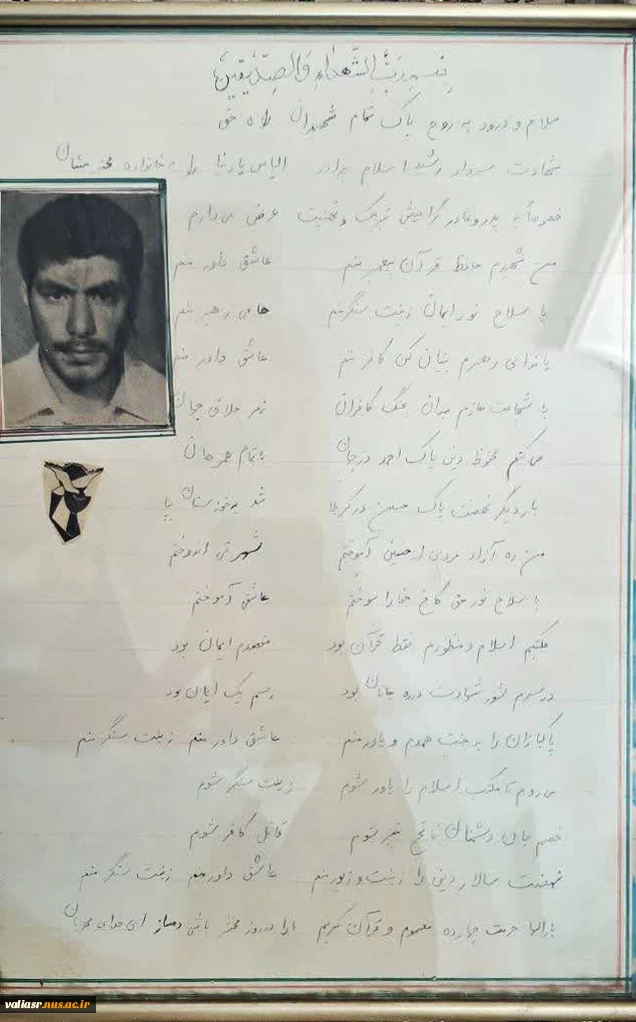 بسم رب الشهداء والصدیقین
سلام و درود به روح پاک تمام شهیدان راه حق
شهادت سردار رشید اسلام برادر الیاس پارنیا را به خانواده محترمشان
خصوصاً به پدر و مادر گرامیش تبریک و تهنیت عرض می دارم
من شهیدم حافظ قرآن پیغمبر منم عاشق داور منم
با سلاح نور ایمان زینت سنگر منم حامی رهبر منم
با ندای رهبرم بنیان کن کافر منم عاشق داور منم
با شجاعت عازم میدان جنگ کافران
می کنم محفوظ دین پاک احمد در جهان با تمام همرهان
بار دیگر نهضت پاک حسین در کربلا شد به خوزستان بپا
من ره آزاد مردی از حسین آموختم شهرتی اندوختم
با سلاح نور حق کاخ جفا را سوختم عاشقی آموختم
مکتبم اسلام و منظورم فقط قرآن بود مقصدم ایمان بود
در سرم شور شهادت در ره جانان بود رسم یک ایمان بود
پاکبازان را به جنت همدم و یاور منم عاشق داور منم زینت سنگر منم
می روم تا مکتب اسلام را یاور شوم زینت سنگر شوم
خصم جان دشمنان فاتح خیبر شوم قاتل کافر شوم
نهضت سالار دین را زینت و زیور منم عاشق داور منم زینت سنگر منم
بارالها حرمت چهارده معصوم و قرآن کریم روز محشر باشی دمساز ای خدای مهربان
valiasr.nus.ac.ir